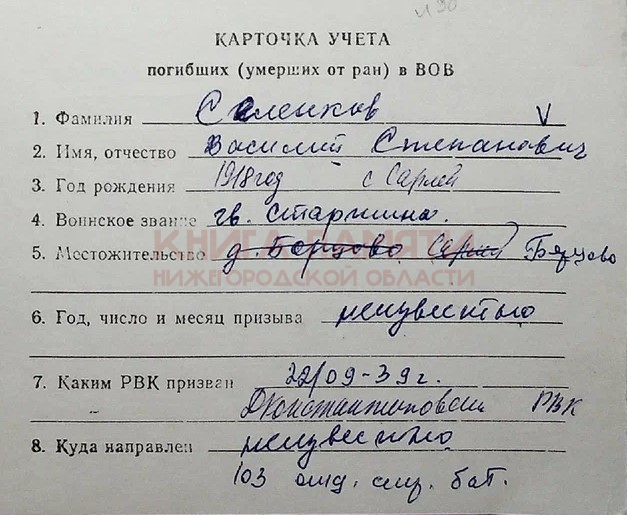 И 90
КАРТОЧКА УЧЕТА
погибших (умерших от ран) в ВОВ
1. Фамилия Селенков V
2. Имя, отчество Василий Степанович
3. Год рождения 1918 год с Сарлей
4. Воинское звание гв. старшина.
КНИГА ПАМЯТИ
5. Местожительство д. Борцово Борцово
НИЖЕГОРОДСКОЙ ОБЛАСТИ
6. Год, число и месяц призыва неизвестно
7. Каким РВК призван 22/09-39г.
Д Константиновским РВК
8. Куда направлен неизвестно
103 отд. сап. бат.